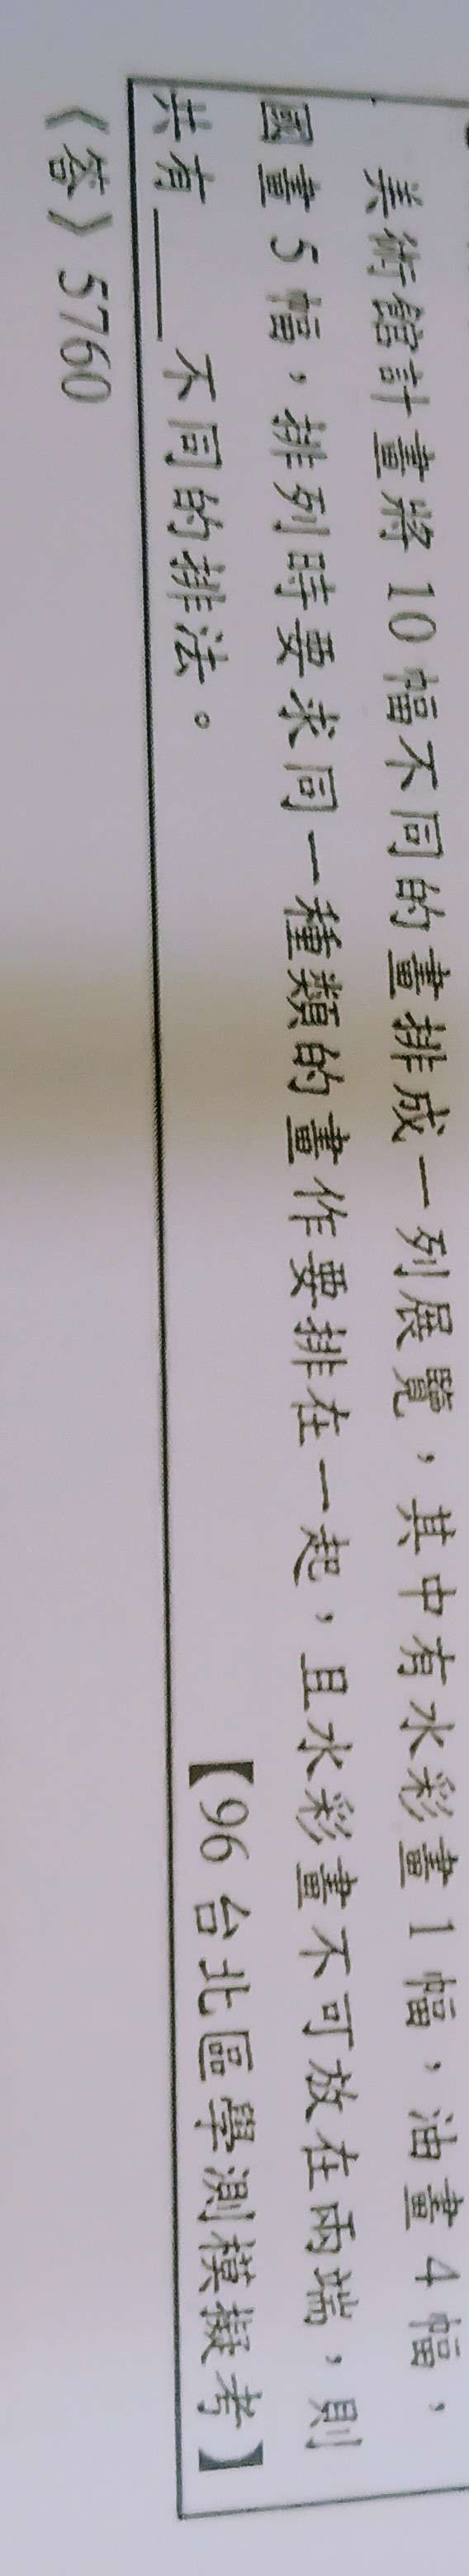 美術館計畫將 10 幅不同的畫排成一列展覽，其中有水彩畫 1 幅，油畫 4 幅，
國畫 5 幅，排列時要求同一種類的畫作要排在一起，且水彩畫不可放在兩端，則
共有＿＿＿不同的排法。 【96 台北區學測模擬考】
《答》5760